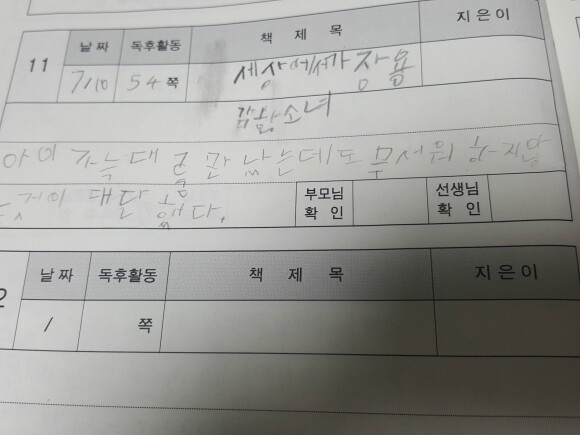 11
날 짜 독후활동 책 제 목 지 은 이
7/10 54쪽 세상에서가 장용
감한소녀
아이 가늑대 를 만 났는데도 무서워 하지만
것이 대달 했다.
부모님 확 인 선생님 확 인
2
날 짜 독후활동 책 제 목 지 은 이
/ 쪽